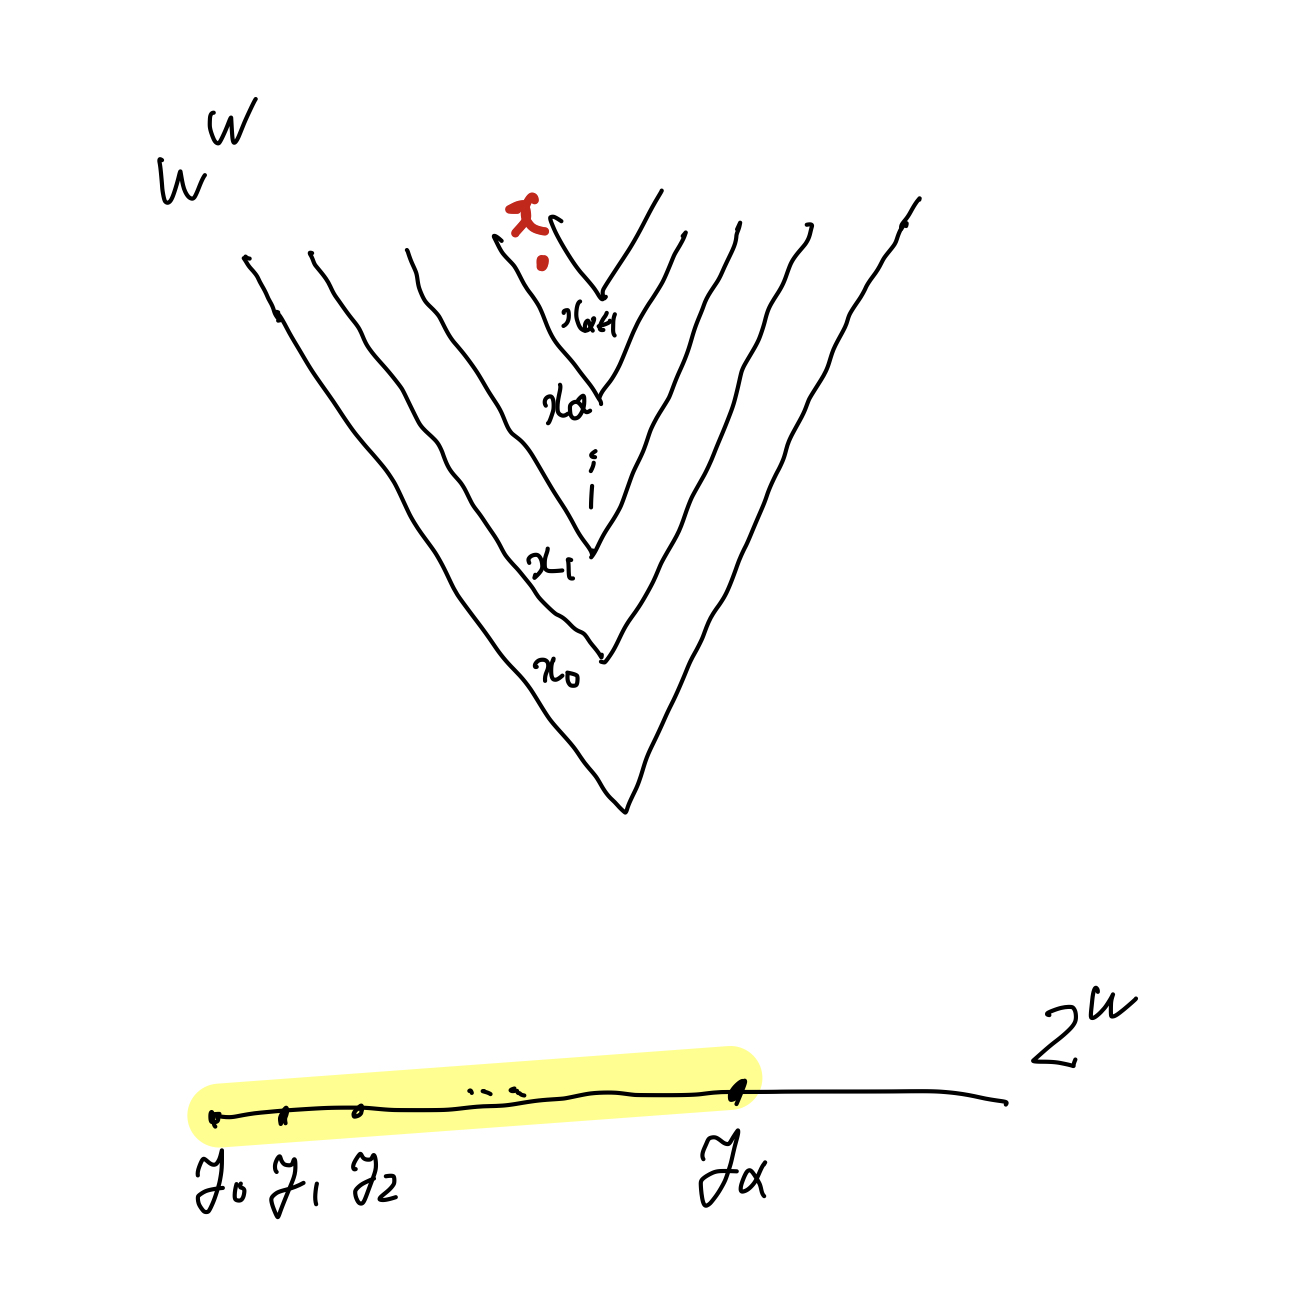 ω^ω
x
x_{α+1}
x_α
x_1
x_0
2^ω
y_0 y_1 y_2 ... y_α